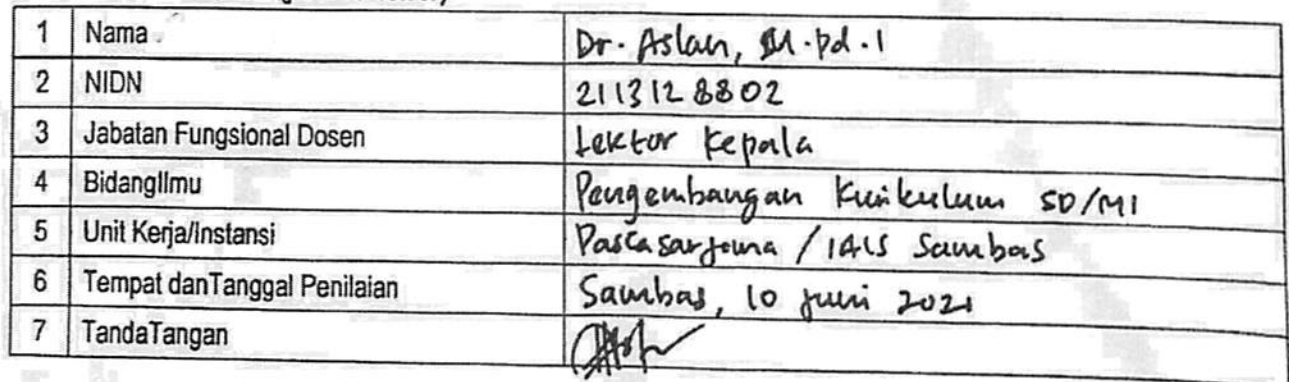 1 Nama Dr. Aslan, M.Pd.I
2 NIDN 2113128802
3 Jabatan Fungsional Dosen Lektor Kepala
4 BidangIlmu Pengembangan Kurikulum SD/MI
5 Unit Kerja/Instansi Pascasarjana / IAIS Sambas
6 Tempat danTanggal Penilaian Sambas, 10 Juni 2021
7 TandaTangan